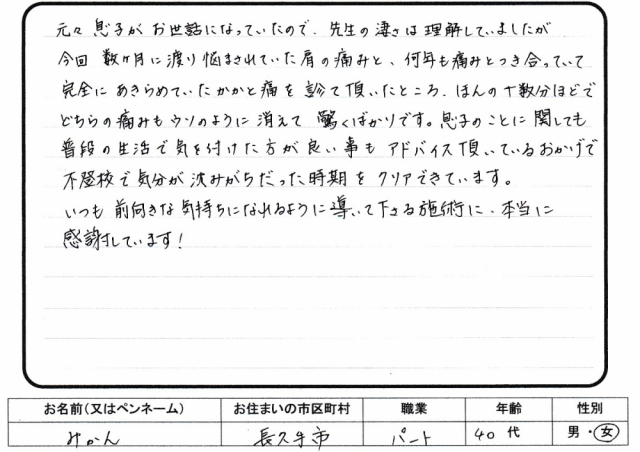 元々息子がお世話になっていたので、先生の凄さは理解していましたが
今回数ヶ月に渡り悩まされていた肩の痛みと、何年も痛みとつき合っていて
完全にあきらめていたかかと痛を診て頂いたところ、ほんの十数分ほどで
どちらの痛みもウソのように消えて驚くばかりです。息子のことに関しても
普段の生活で気を付けた方が良い事もアドバイス頂いているおかげで
不登校で気分が沈みがちだった時期をクリアできています。
いつも前向きな気持ちになれるように導いて下さる施術に、本当に
感謝しています!
お名前(又はペンネーム) お住まいの市区町村 職業 年齢 性別
みかん 長久手市 パート 40代 男・女